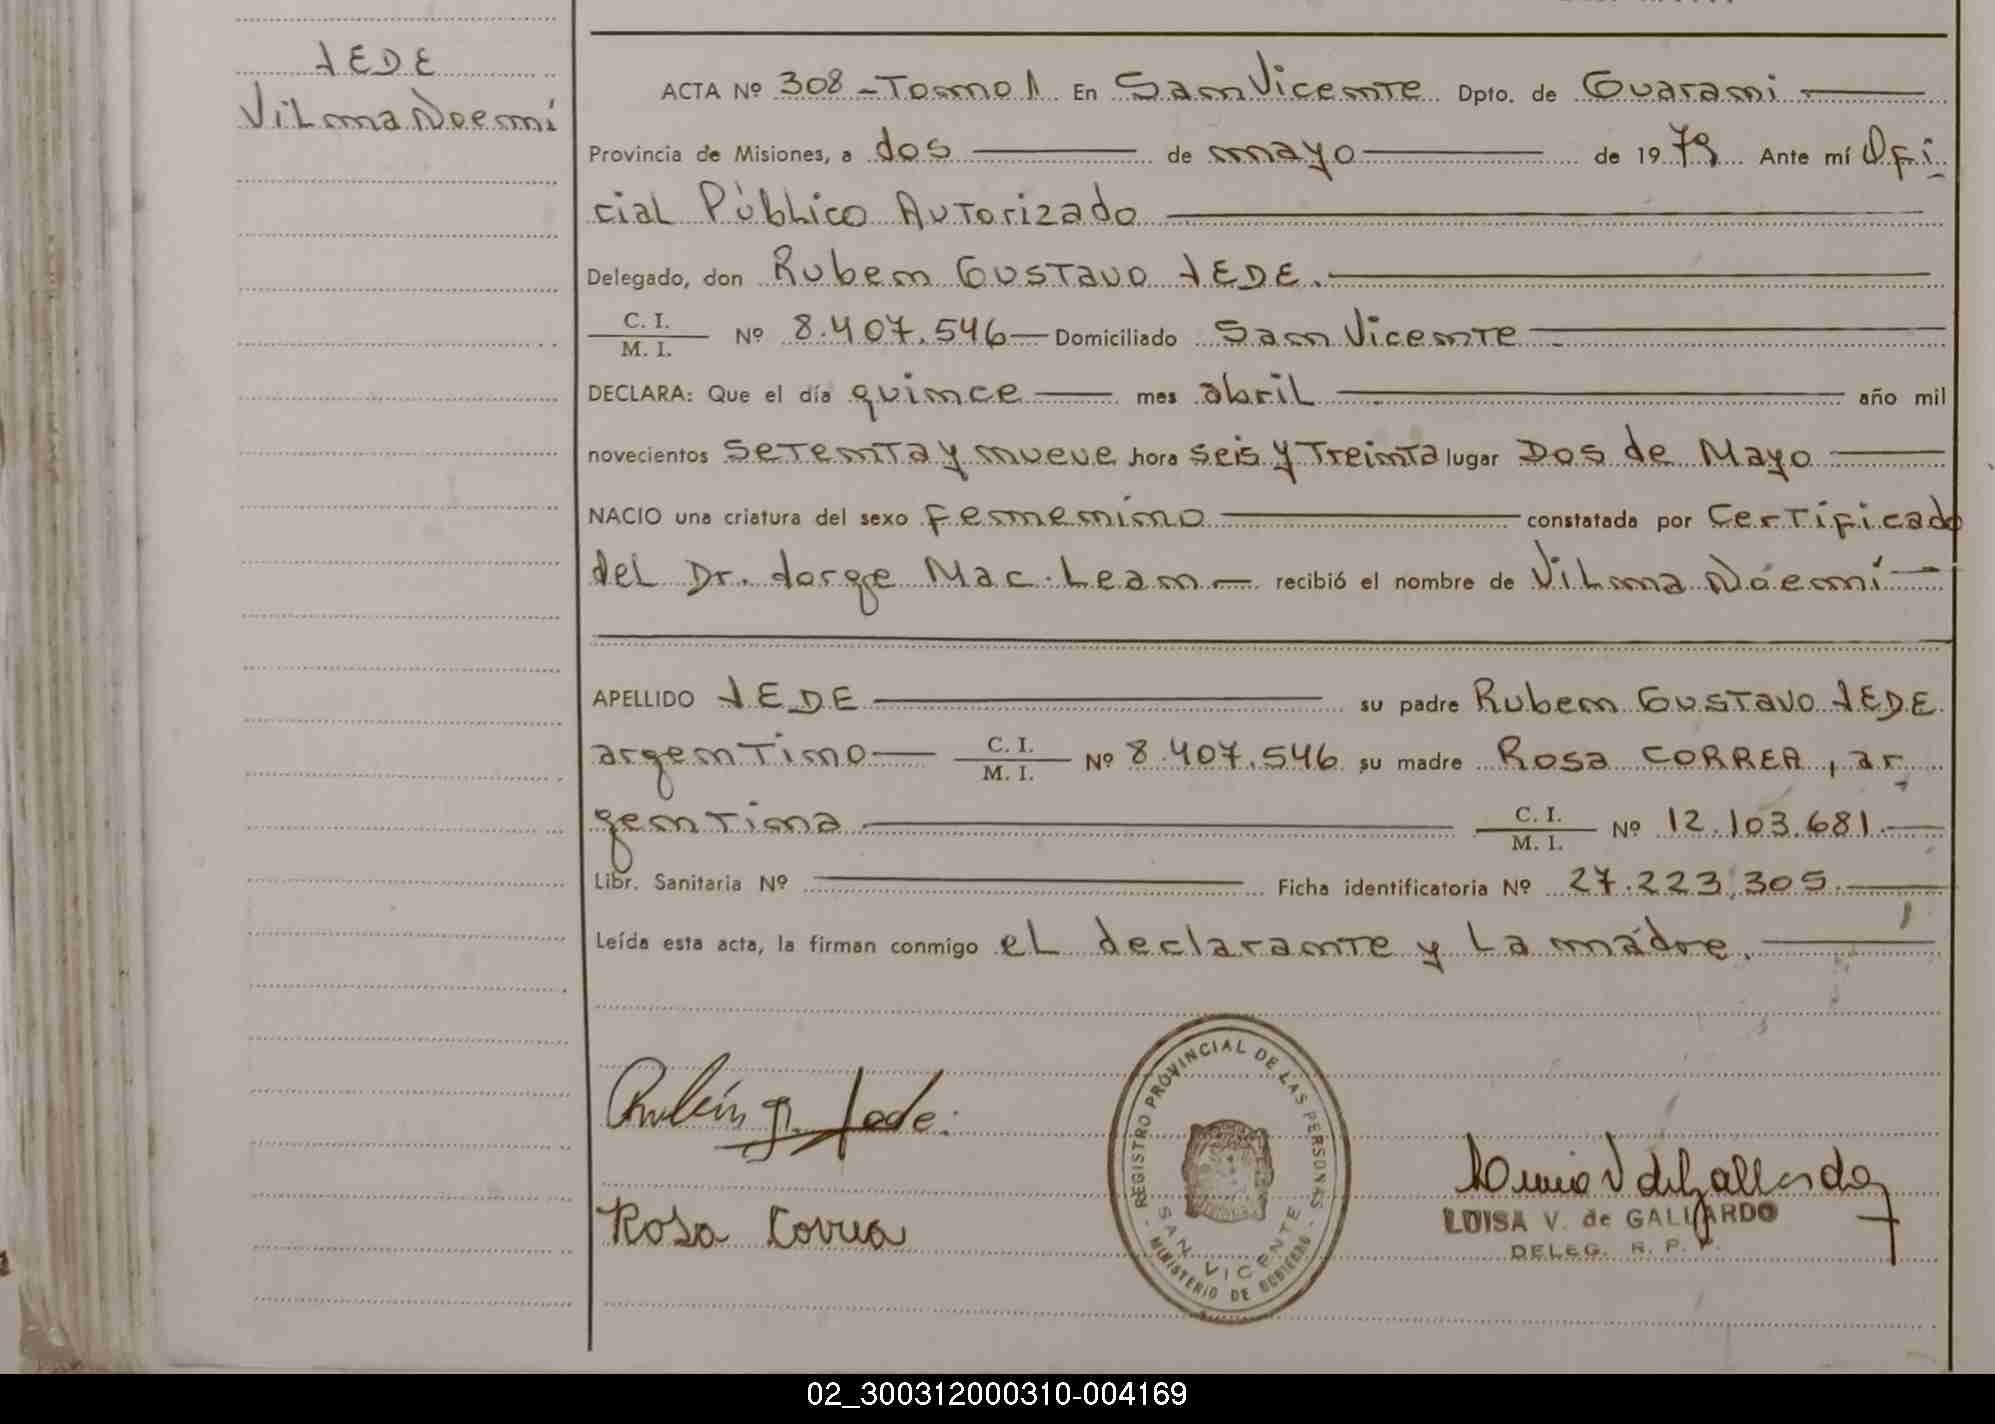 JEDE
Vilma Noemí
ACTA Nº 308 - Tomo 1 En San Vicente Dpto. de Guarani
Provincia de Misiones, a dos de mayo de 1979 Ante mí Ofi
cial Público Autorizado
Delegado, don Ruben Gustavo JEDE.
C. I.
M. I. Nº 8.407.546 Domiciliado San Vicente
DECLARA: Que el día quince mes abril año mil
novecientos setenta y nueve hora seis y treinta lugar Dos de Mayo
NACIO una criatura del sexo femenino constatada por Certificado
del Dr. Jorge Mac. Lean recibió el nombre de Vilma Noemí
APELLIDO JEDE su padre Ruben Gustavo JEDE
argentino C. I. M. I. Nº 8.407.546 su madre Rosa CORREA, ar
gentina C. I. M. I. Nº 12.103.681
Libr. Sanitaria Nº Ficha identificatoria Nº 27.223.305
Leída esta acta, la firman conmigo el declarante y la madre.
Rubén G. Jede.
Rosa Correa
REGISTRO PROVINCIAL DE LAS PERSONAS
SAN VICENTE
MINISTERIO DE GOBIERNO
Luisa V de Gallardo
LUISA V. de GALLARDO
DELEG. R. P. P.
02_300312000310-004169